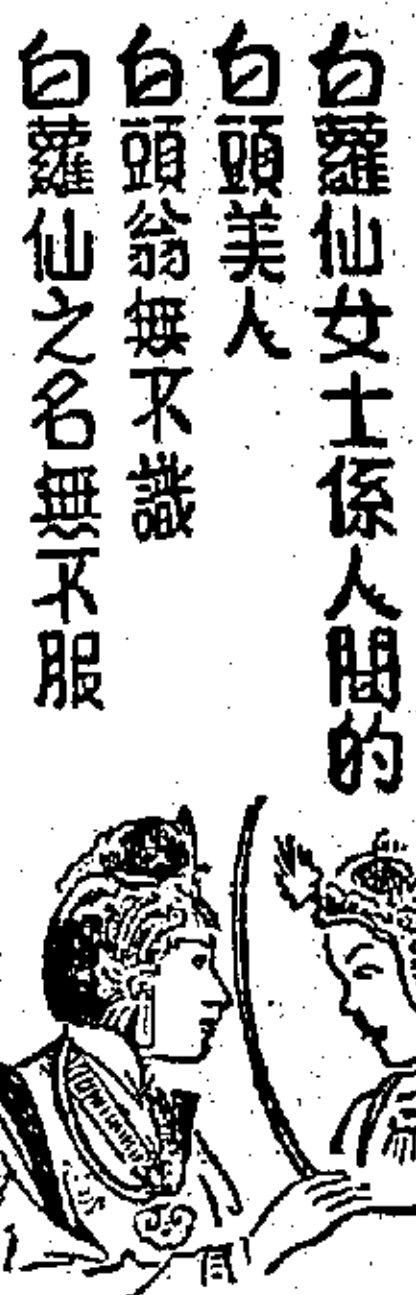 白蘿仙女士係人間的
白頭美人
白頭翁無不識
白蘿仙之名無不服